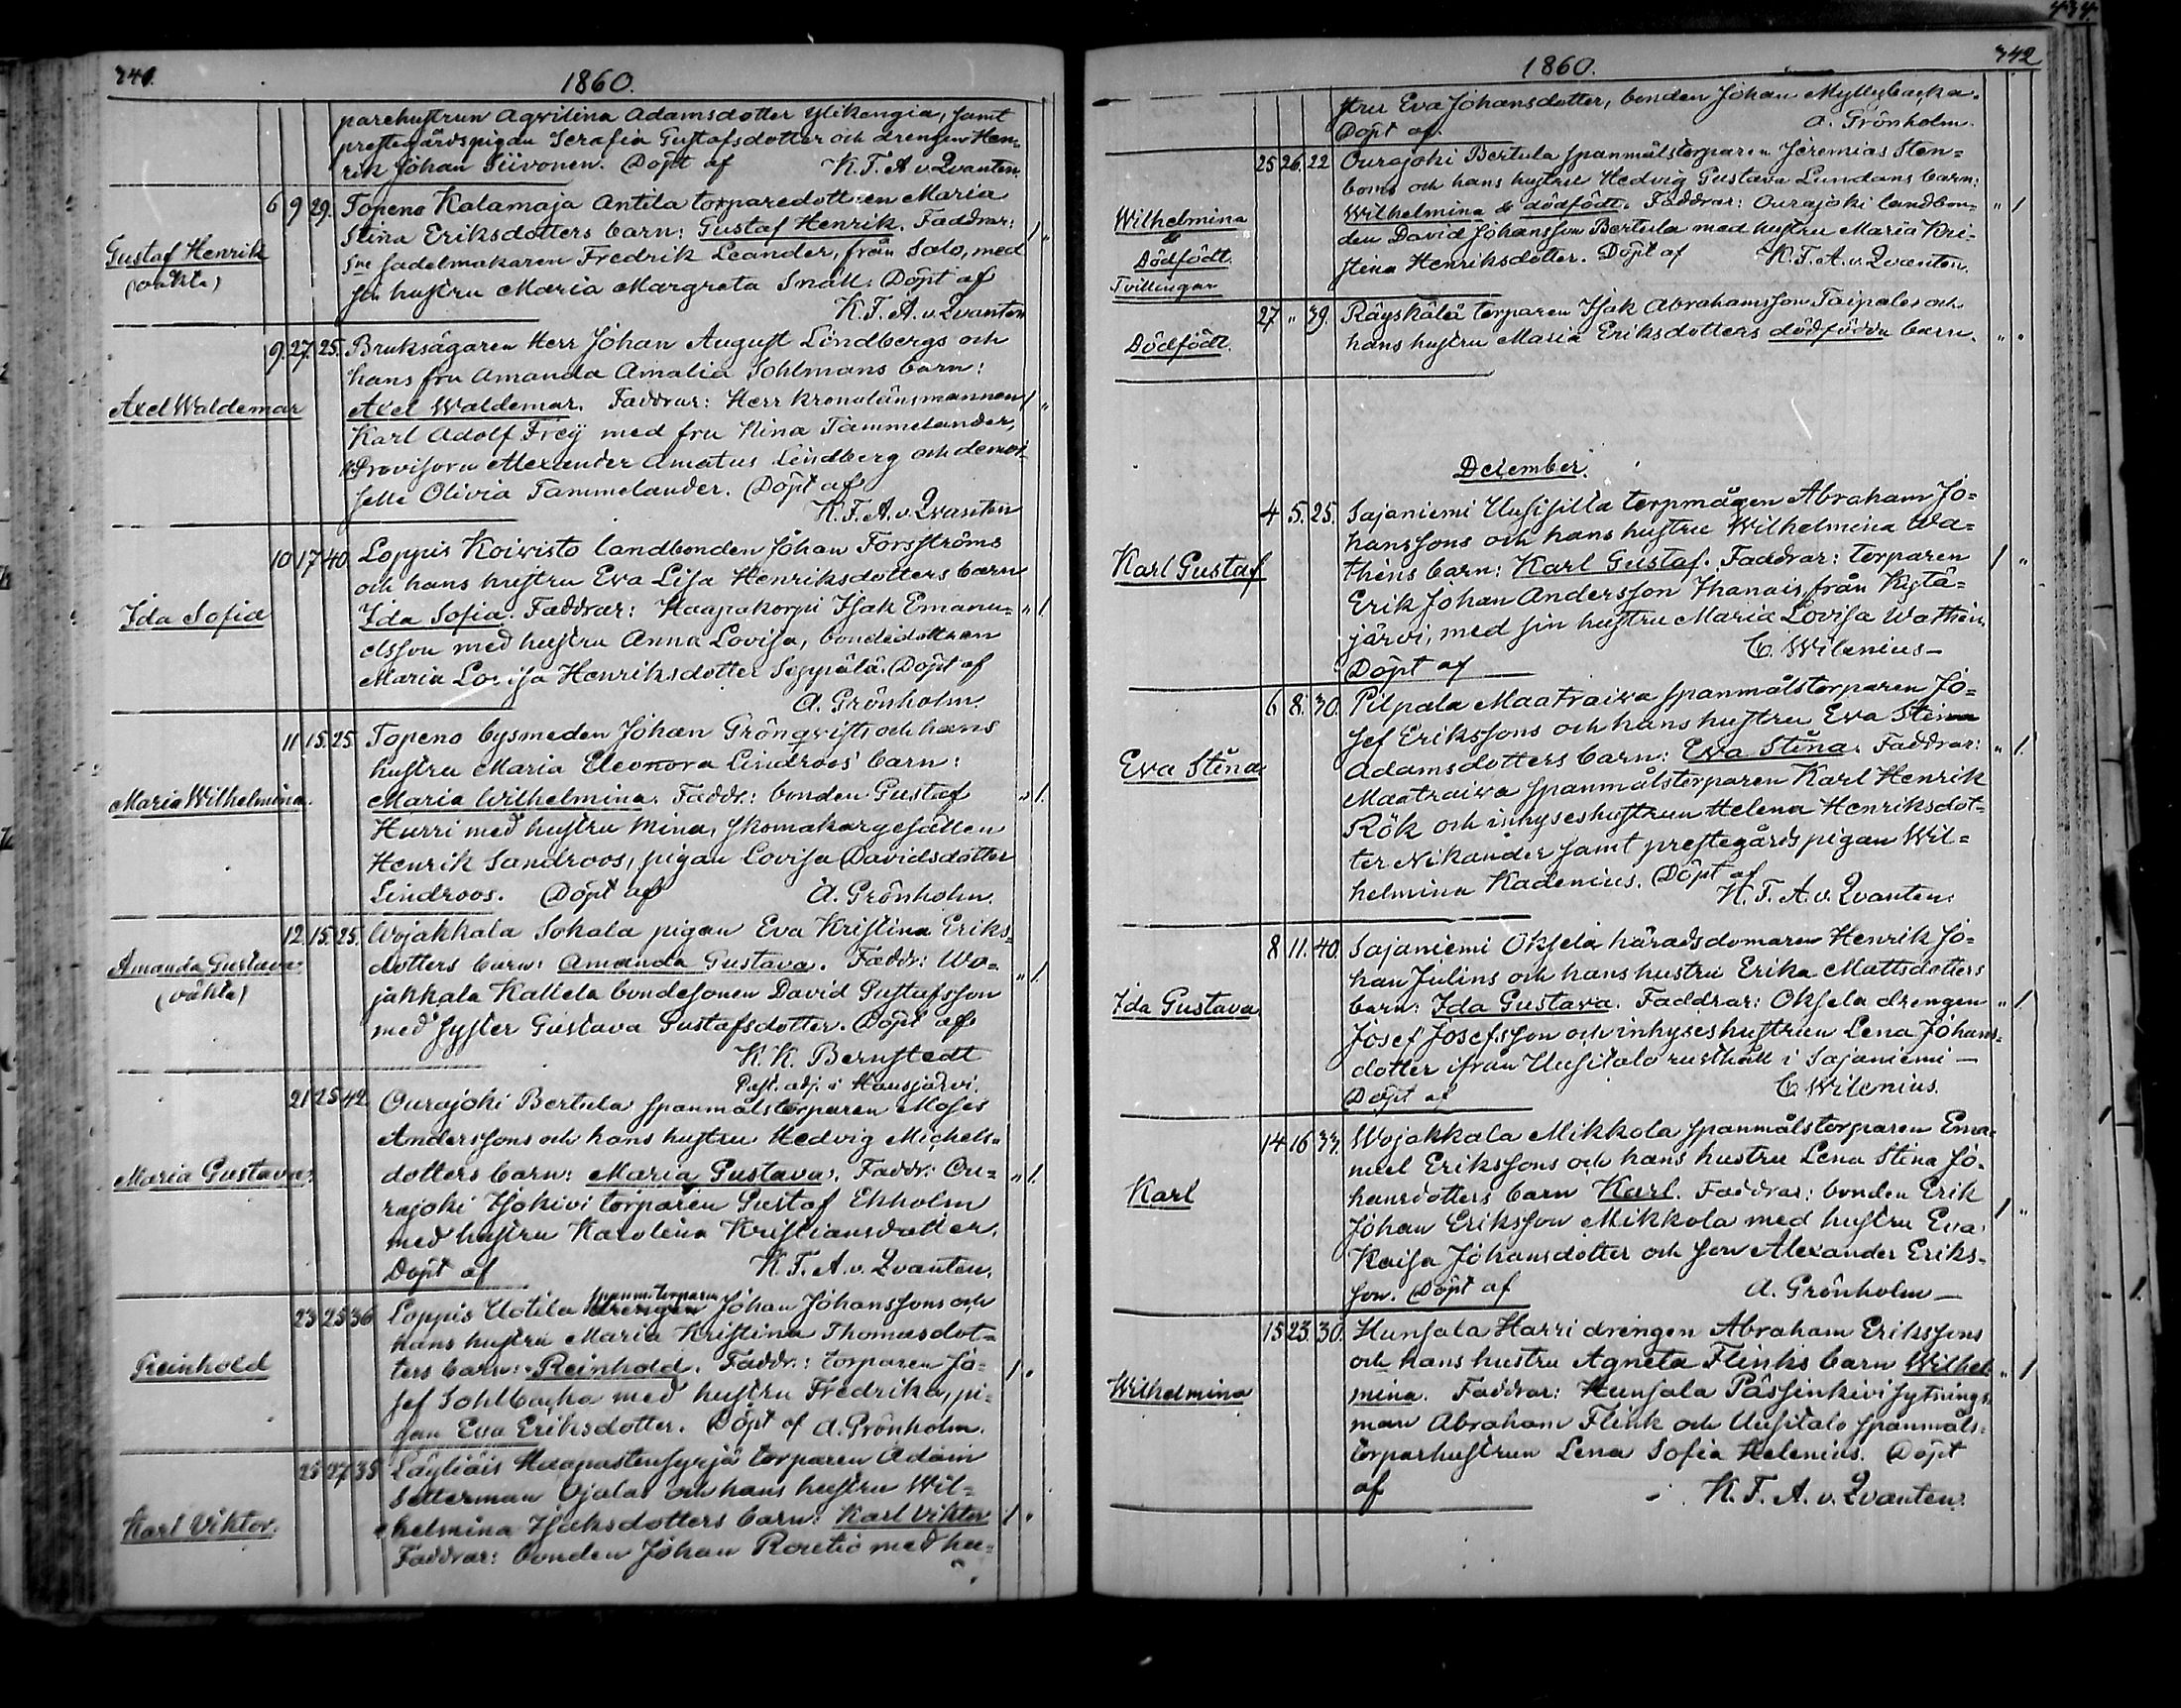 341.
1860.
parehustrun Aqvilina Adamsdotter Ylikangia, samt
prestegårdspigan Serafia Gustafsdotter och drengen Hen-
rik Johan Siivonen. Döpt af K. F. A. v. Qvanten.
Gustaf Henrik
(oäkta)
6 9 29. Topeno Kalamaja Antila torparedottren Maria
Stina Eriksdotters barn: Gustaf Henrik. Faddrar: 1 "
sadelmakaren Fredrik Leander, från Salo, med
sin hustru Maria Margreta Snäll. Döpt af
K. F. A. v. Qvanten
Axel Waldemar
9. 27. 25. Bruksägaren Herr Johan August Lindbergs och
hans fru Amanda Amalia Sohlmans barn:
Axel Waldemar. Faddrar: Herr kronolänsmannen 1 "
Karl Adolf Frey med fru Nina Tammelander,
Provisorn Alexander Amatus Lindberg och demoi-
selle Olivia Tammelander. Döpt af
K. F. A. v. Qvanten
Ida Sofia
10 17 40. Loppis Koivisto landbonden Johan Forsströms
och hans hustru Eva Lisa Henriksdotters barn
Ida Sofia. Faddrar: Haapakorpi Isak Emanu- " 1.
elsson med hustru Anna Lovisa, bondedottren
Maria Lovisa Henriksdotter Seppälä. Döpt af
A. Grönholm.
Maria Wilhelmina.
11 15. 25 Topeno bysmeden Johan Grönqvists och hans
hustru Maria Eleonora Lindroos' barn:
Maria Wilhelmina. Faddr.: bonden Gustaf " 1.
Hurri med hustru Mina, skomakargesällen
Henrik Sandroos, pigan Lovisa Davidsdotter
Lindroos. Döpt af A. Grönholm.
Amanda Gustava
(oäkta)
12. 15. 25. Wojakkala Sokala pigan Eva Kristina Eriks-
dotters barn: Amanda Gustava. Faddr: Wo- " 1.
jakkala Kallela bondesonen David Gustafsson
med syster Gustava Gustafsdotter. Döpt af
K. K. Bernstedt
Past. adj. i Hausjärvi.
Maria Gustava.
21 25 42. Ourajoki Bertula spanmålstorparen Moses
Anderssons och hans hustru Hedvig Michels-
dotters barn: Maria Gustava. Faddr: Ou- " 1.
rajoki Isokivi torparen Gustaf Ekholm
med hustru Karolina Kristiansdotter.
Döpt af K. F. A. v. Qvanten.
Reinhold
spanm. torparen
23 25 36 Loppis Uotila drengen Johan Johanssons och
hans hustru Maria Kristina Thomasdot-
ters barn: Reinhold. Faddr.: torparen Jo- 1 "
sef Sohlbacka med hustru Fredrika, pi-
gan Eva Eriksdotter. Döpt af A. Grönholm.
Karl Viktor.
25 27 35 Läyliäis Haapastensyrjä torparen Adam
Setterman Ojalas och hans hustru Wil-
helmina Isaksdotters barn: Karl Viktor 1 "
Faddrar: bonden Johan Rouetio med hu-
434.
342
1860.
stru Eva Johansdotter, bonden Johan Myllybacka.
Döpt af A. Grönholm.
Wilhelmina
&
Dödfödt.
Tvillingar
25 26. 22 Ourajoki Bertula spanmålstorparen Jeremias Sten-
boms och hans hustru Hedvig Gustava Lundans barn:
Wilhelmina & dödfödt. Faddrar: Ourajoki landbon- " 1
den David Johansson Bertula med hustru Maria Kri-
stina Henriksdotter. Döpt af K. F. A. v. Qvanten.
Dödfödt.
27 " 39. Räyskälä torparen Isak Abrahamsson Taipales och
hans hustru Maria Eriksdotters dödfödda barn. " "
December.
Karl Gustaf
4 5. 25. Sajaniemi Uusisilla torpmågen Abraham Jo-
hanssons och hans hustru Wilhelmina Wa-
théns barn: Karl Gustaf. Faddrar: torparen 1 "
Erik Johan Andersson Ihanais, från Kytä-
järvi, med sin hustru Maria Lovisa Wathén.
Döpt af C. Wilenius—
Eva Stina
6 8. 30. Pilpala Maatraiva spanmålstorparen Jo-
sef Erikssons och hans hustru Eva Stina
Adamsdotters barn: Eva Stina. Faddrar: " 1.
Maatraiva spanmålstorparen Karl Henrik
Rök och inhyseshustrun Helena Henriksdot-
ter Nikander samt prestegårds pigan Wil-
helmina Kadenius. Döpt af
K. F. A. v. Qvanten.
Ida Gustava
8 11. 40. Sajaniemi Oksela häradsdomaren Henrik Jo-
han Julins och hans hustru Erika Mattsdotters
barn: Ida Gustava. Faddrar: Oksela drengen " 1.
Josef Josefsson och inhyseshustrun Lena Johans-
dotter ifrån Uusitalo rusthåll i Sajaniemi —
Döpt af C. Wilenius.
Karl
14 16 33. Wojakkala Mikkola spanmålstorparen Ema-
nuel Erikssons och hans hustru Lena Stina Jo-
hansdotters barn Karl. Faddrar: bonden Erik
Johan Eriksson Mikkola med hustru Eva 1 "
Kaisa Johansdotter och son Alexander Eriks-
son. Döpt af A. Grönholm—
Wilhelmina
15 23. 30. Hunsala Harri drengen Abraham Erikssons
och hans hustru Agneta Flinks barn Wilhel- " 1
mina. Faddrar: Hunsala Pässinkivi sytnings-
man Abraham Flink och Uusitalo spanmåls-
torparhustrun Lena Sofia Helenius. Döpt
af K. F. A. v. Qvanten.